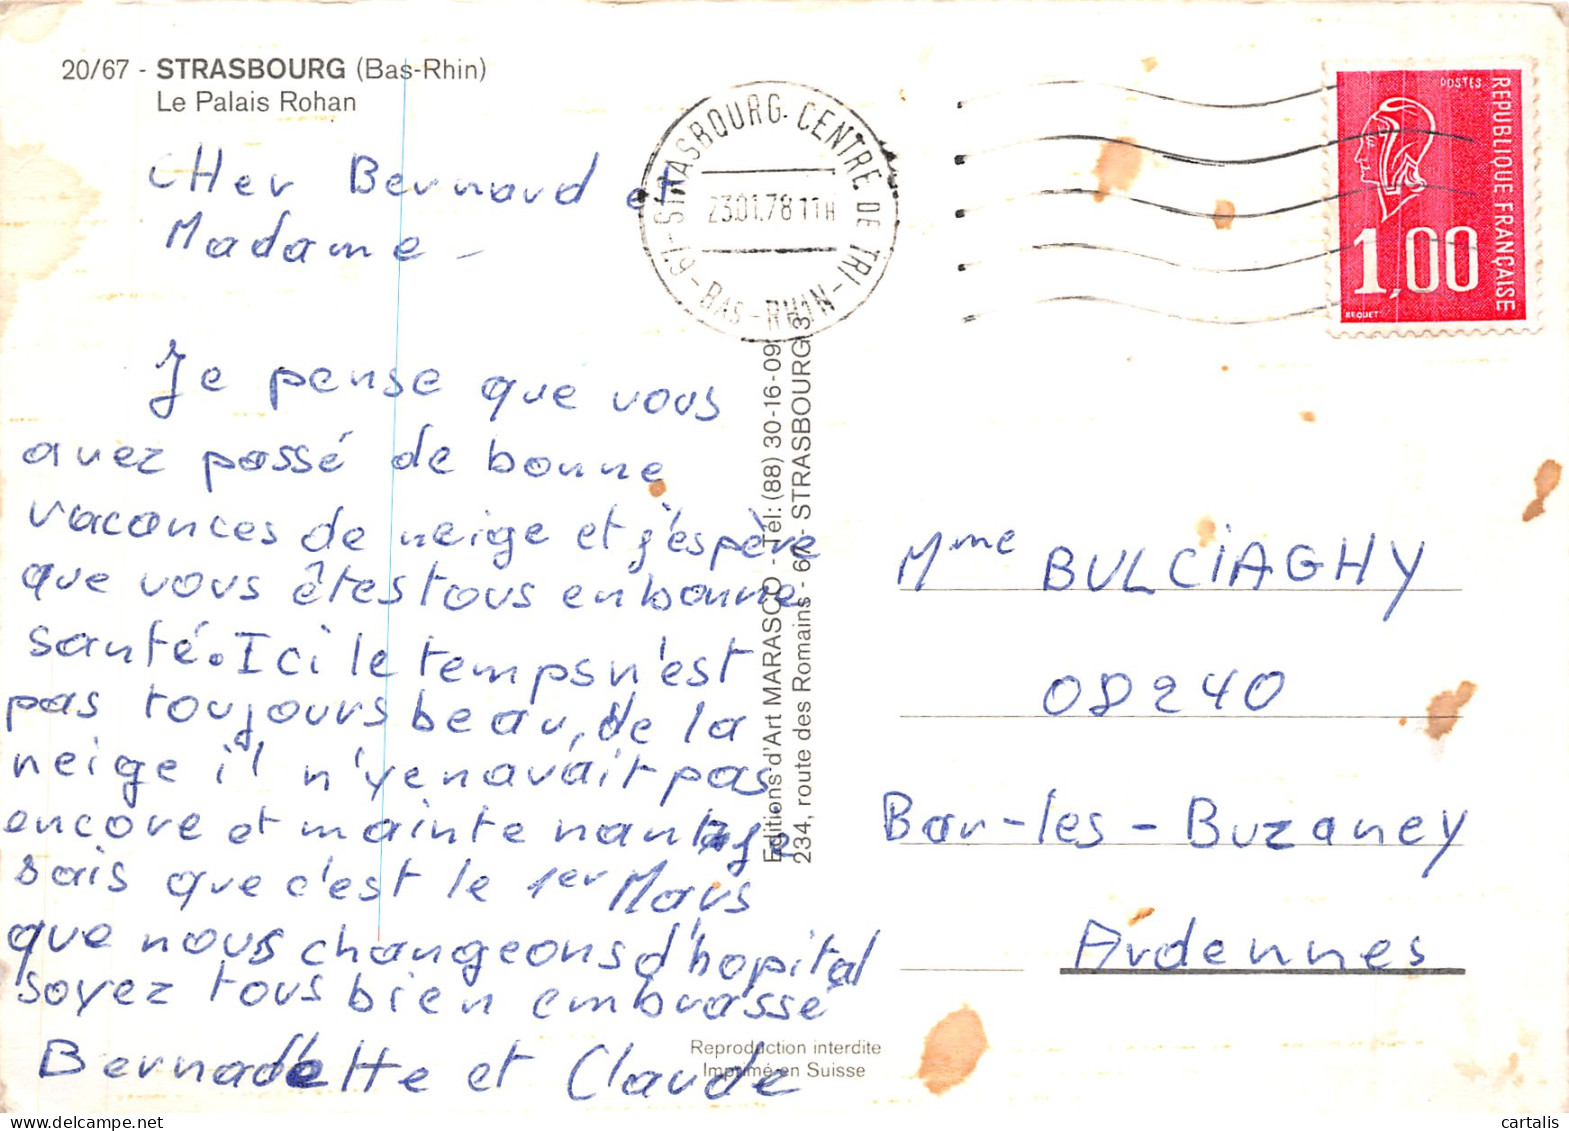 20/67 - STRASBOURG (Bas-Rhin)
Le Palais Rohan
67 - STRASBOURG. CENTRE DE TRI - BAS - RHIN -
23.01.78 11H
POSTES
REPUBLIQUE FRANÇAISE
1,00
BEQUET
CHer Bernard et
Madame -
Je pense que vous
avez passé de bonne
vacances de neige et j'espère
que vous êtes tous en bonne
santé. Ici le temps n'est
pas toujours beau, de la
neige il n'y en avait pas
encore et maintenant je
sais que c'est le 1er Mars
que nous changeons d'hopital
soyez tous bien embrassé
Bernadette et Claude
Editions d'Art MARASCO - Tél: (88) 30-16-09
234, route des Romains - 67 - STRASBOURG 3
Mme BULCIAGHY
08240
Bar-les-Buzaney
Ardennes
Reproduction interdite
Imprimé en Suisse
delcampe.net
cartalis